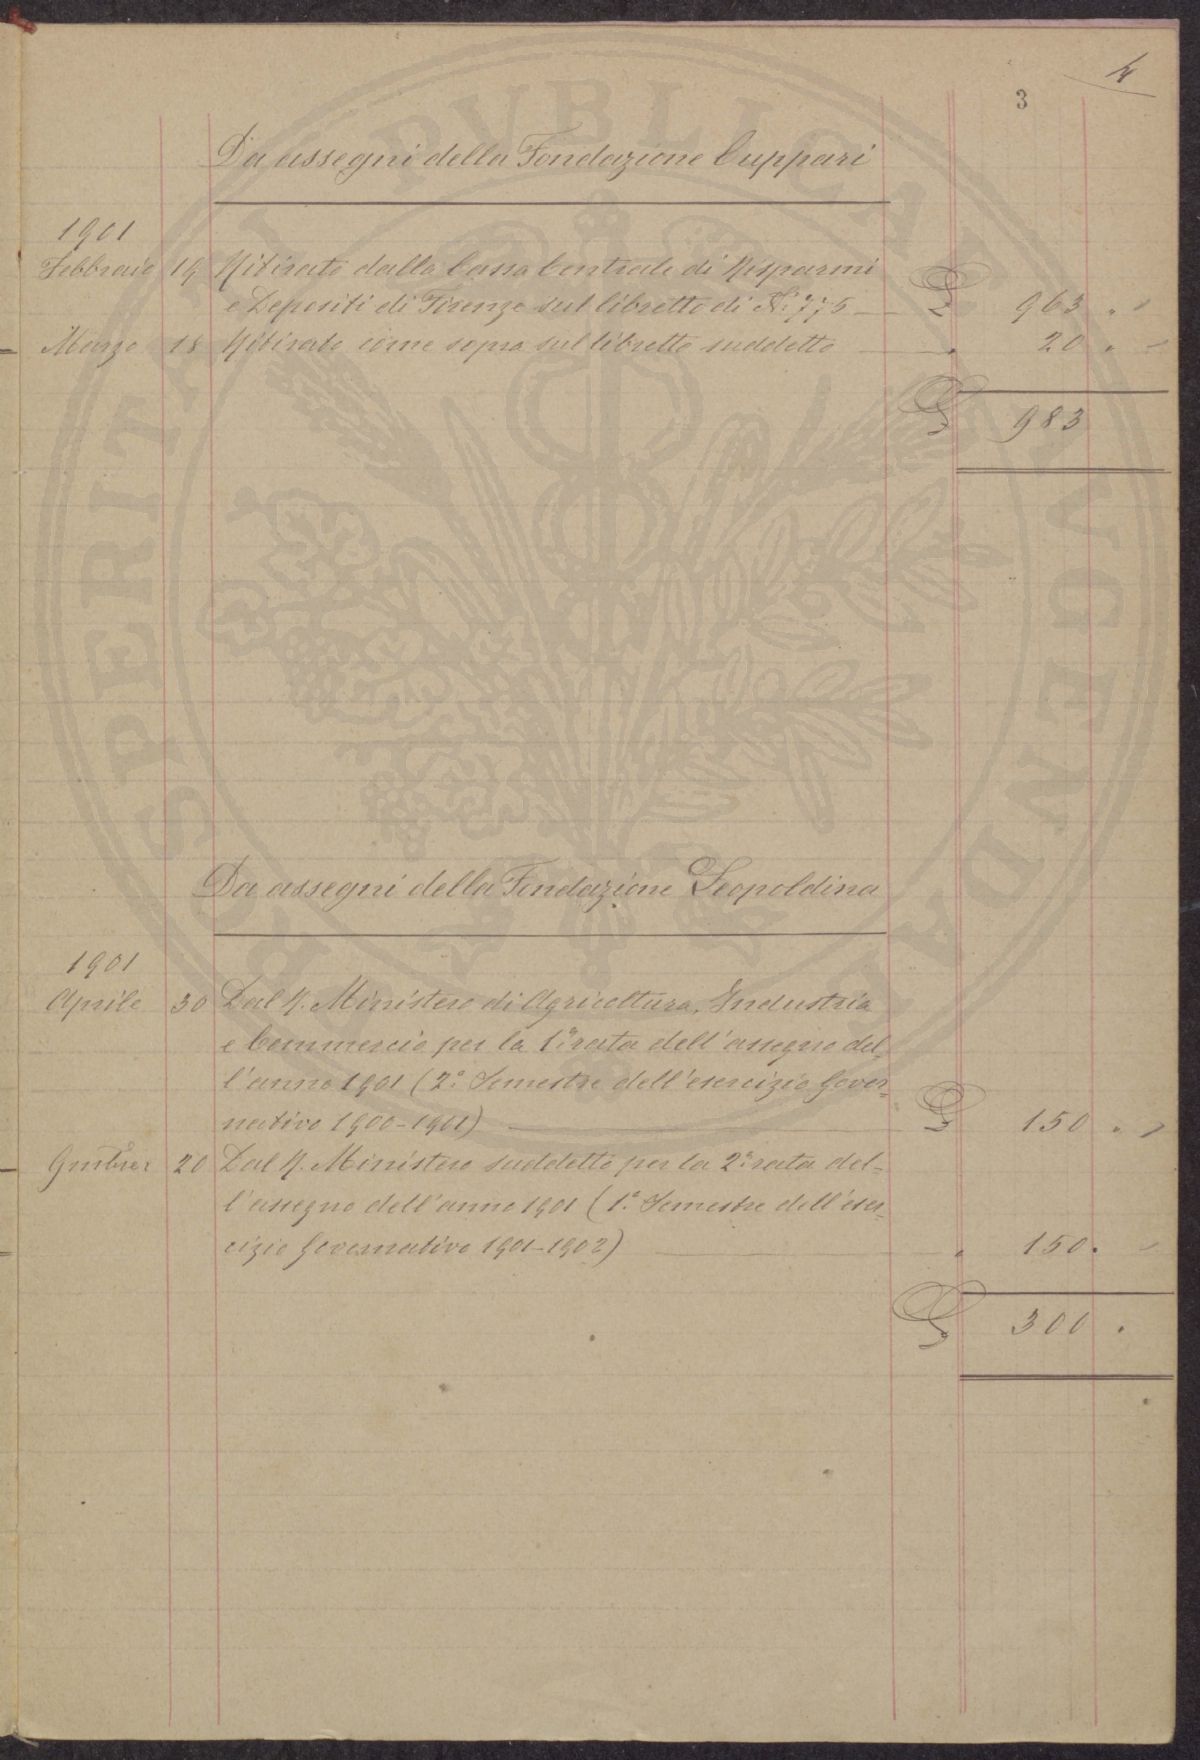 4
3
Da assegni della Fondazione Cuppari
1901
Febbraio 19 Ritirato dalla Cassa Centrale di Risparmi
e Depositi di Firenze sul libretto di N.° 775 — £ 963 "
Marzo 18 Ritirato come sopra sul libretto suddetto — " 20 "
£ 983
Da assegni della Fondazione Leopoldina
1901
Aprile 30 Dal R. Ministero di Agricoltura, Industria
e Commercio per la 1ª rata dell'assegno del-
l'anno 1901 (2° Semestre dell'esercizio Gover-
nativo 1900-1901) — £ 150 "
20 Dal R. Ministero suddetto per la 2ª rata del-
l'assegno dell'anno 1901 (1° Semestre dell'eser-
cizio Governativo 1901-1902) — " 150 "
£ 300 "
PROSPERITATI PVBLICAE AVGENDAE